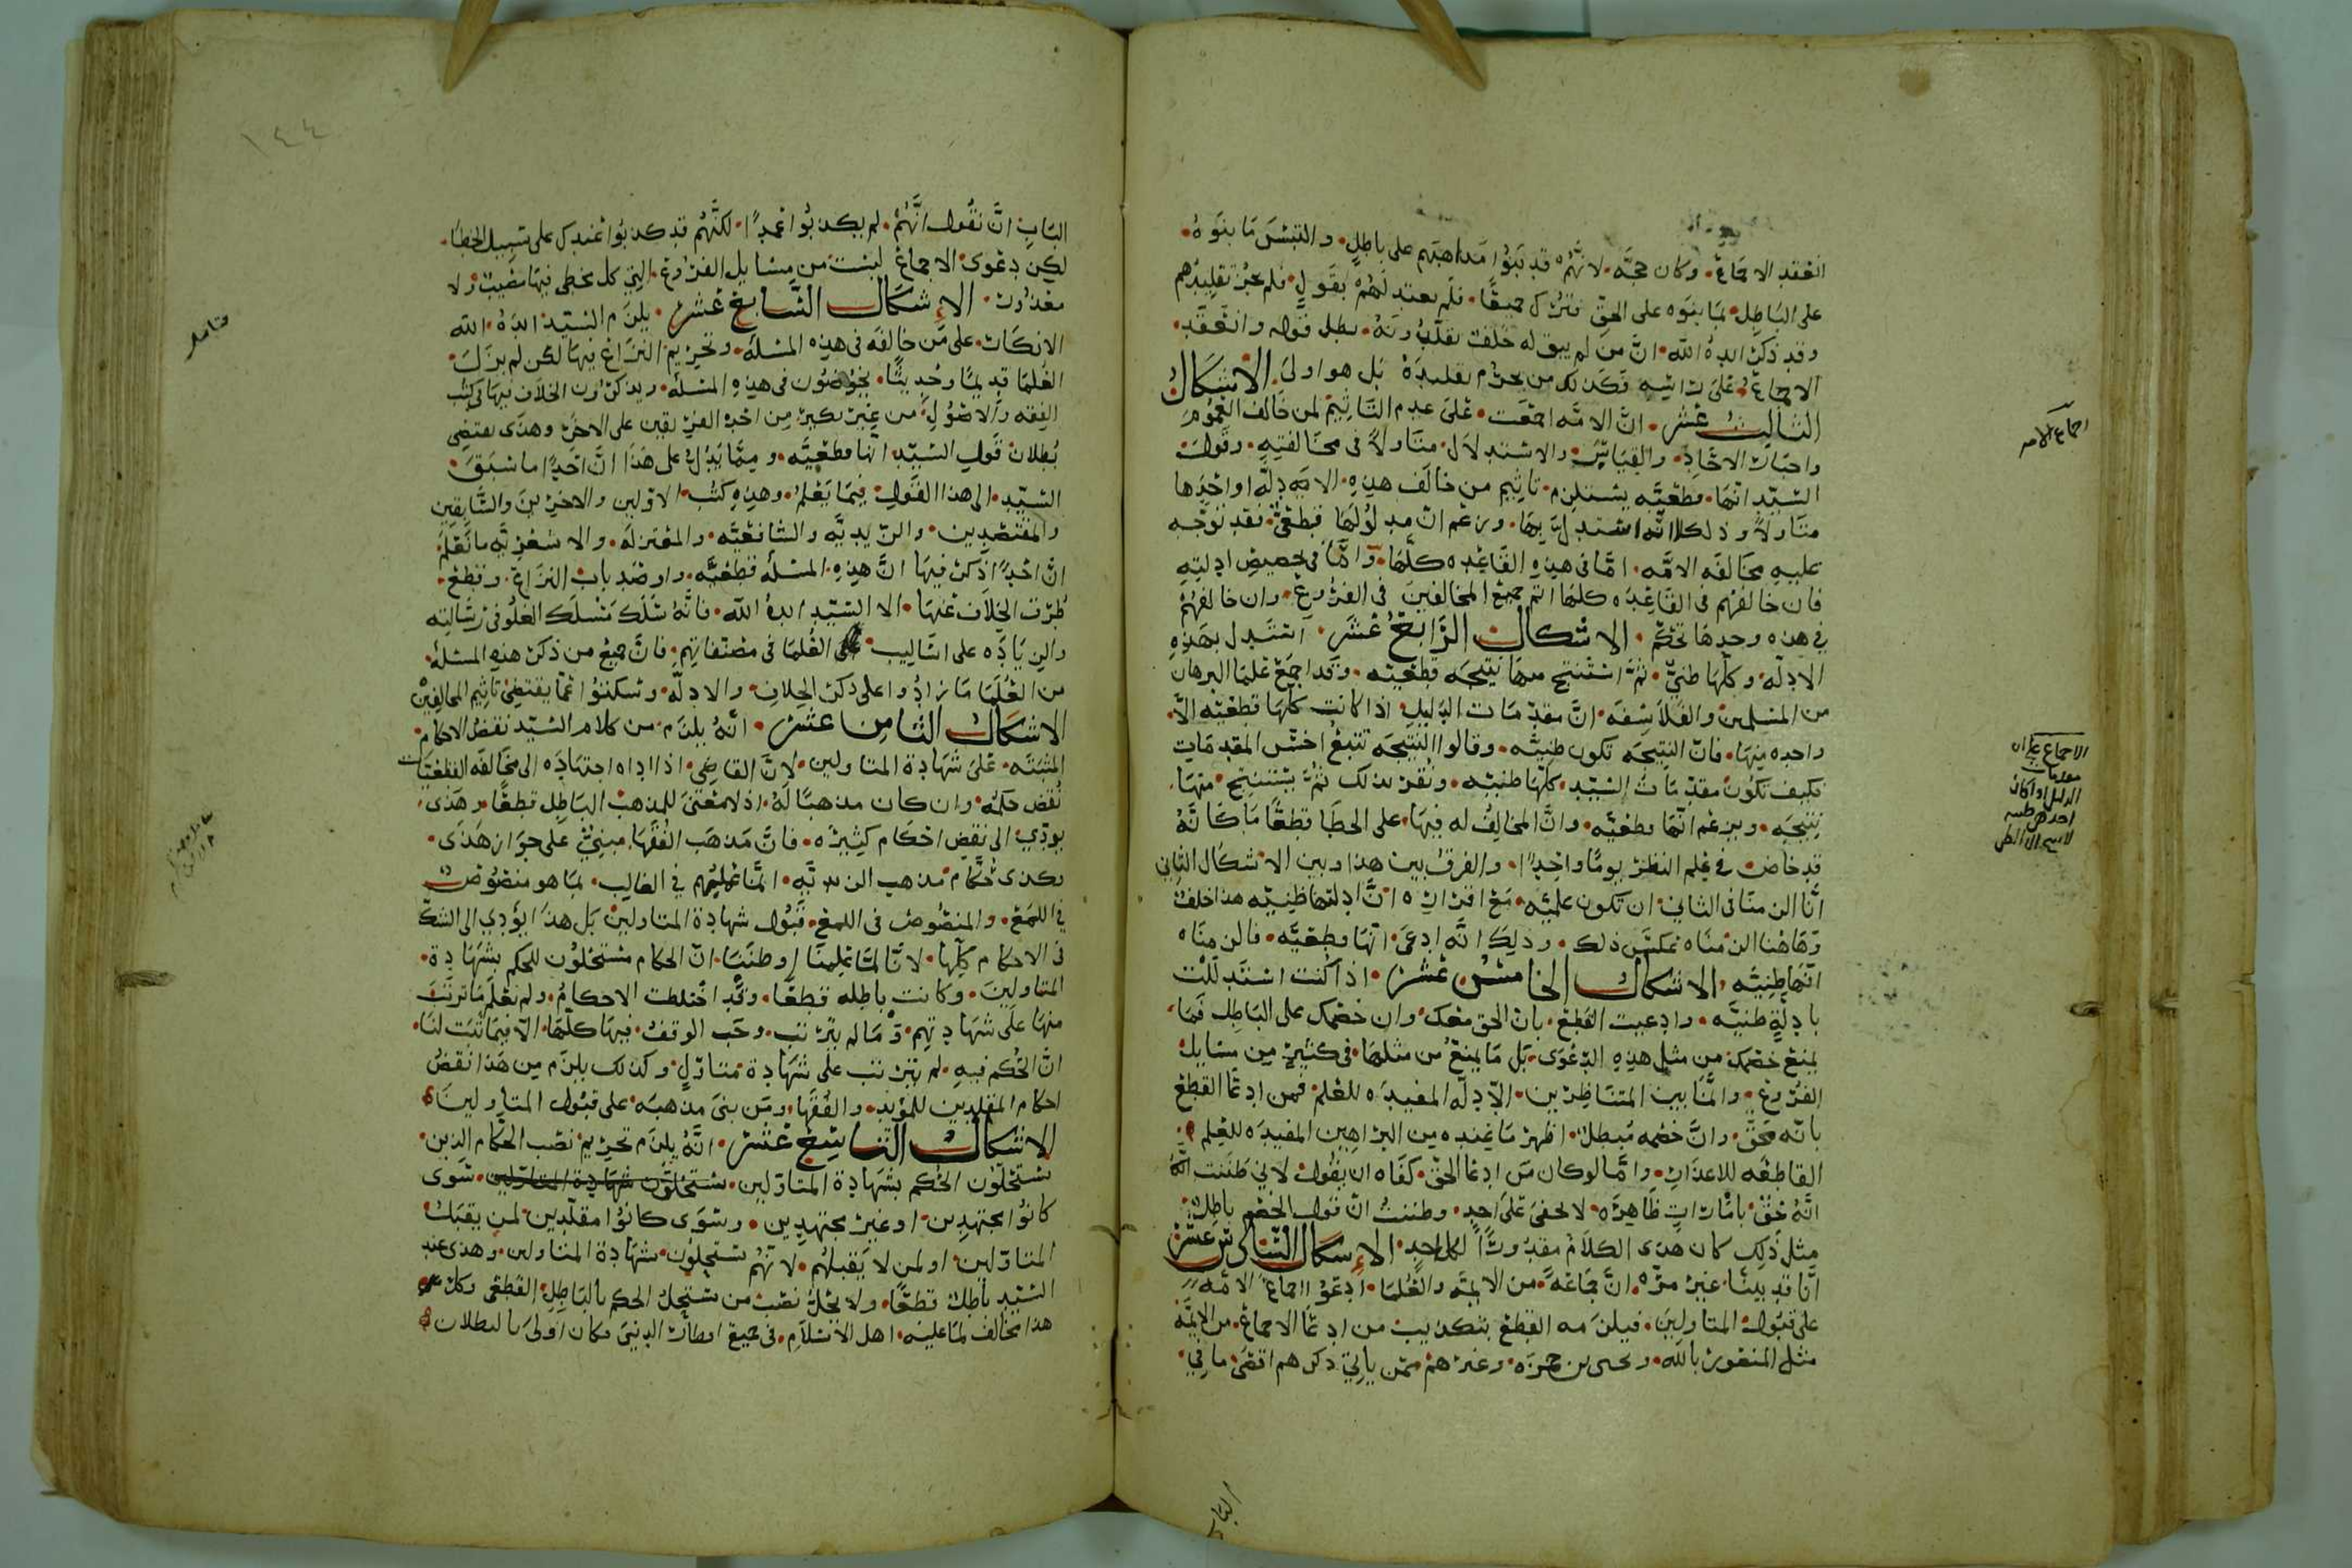 انعقد الاجماع وكان حجَّه لانَّهم قد بَنَوا مَذاهبَهم على باطلٍ والتبسَ مَا بنَوهُ
على البَاطِل بمَا بنَوه على الحقّ فترك جميعًا فلَم يعتد لَهمْ بقَولٍ فلم يجز تقليدهم
وقد ذكر ايده الله انَّ من لم يبق له خَلَف يقلّدونَهُ بطل قوله وانعَقَد
الاجماعُ على رائيه فكَذلك من يحرُم تقليدهُ بَل هو اولَى الاشكَالُ
الثالِث عَشَر انَّ الامّه اجمَعت على عدم التَّاثيم لمن خَالف العُمُومَ
واخبَار الاحَادِ والقيَاسَ والاستدلَال متَاولاً في مخَالفتِهِ وقَولُ
السّيّد انّهَا قطعيَّه يستلزم تاثيم من خالَف هذِهِ الادِلّه او احدهَا
متَاولاً وذلك لانَّه استدلَّ بهَا وزعَم انّ مدلوُلَها قطعيٌّ فقد توجّه
عليهِ مخَالفَه الامّه امّا في هذِهِ القَاعِده كلِّهَا وامَّا في تخصيصِ ادِلتِهِ
فان خالفَهم في القَاعِده كلهَا اثم جميعُ المخالفينَ في الفروعِ وان خالفهُمْ
في هذه وحدهَا تحكّم الاشكال الرّابعُ عَشَر استَدل بهَذِهِ
الادِلّه وكلّها ظنيٌّ ثمَّ استَنتج منهَا نتيجَه قطعيّه وقَد اجمَع علمَا البرهَان
من المسلمينَ والفَلاسِفَه انَّ مقدّمَات الدَليلِ اذا كانت كلّهَا قطعيّه الاّ
واحده منهَا فانّ النتيجَه تكون ظنيّه وقالوا النتيجَه تتبعُ اخسّ المقدمَاتِ
فكيف تكوُن مقدّمَاتُ السّيّدِ كلّهَا ظنيّه ونُقِرّ بذلك ثمَّ يستَنتِج منهَا
نتيجَه ويزعم انّهَا قطعيَّه وانَّ المخالِفُ له فيهَا على الخطَا قطعًا مَا كانَّهُ
قد خاض في عِلم النظر يومًا واحِدًا والفرقُ بين هذا وبين الاشكَال الثاني
انَّا الزمنَا في الثاني ان تكون علميّه مَع اقرارِه انَّ ادلتهَا ظنِيّه هذا خلفُ
وهَاهنا الزمنَاه بعكسِ ذلك وذلِك انَّه ادعَى انّهَا قطعيَّه فالزمنَاه
انّهَا ظنِيّه الاشكالُ الخامسُ عَشَر اذا كنت استَدلَلْت
بادِلّةٍ ظنيَّه وادعيت القَطع بانّ الحق معَك وان خصْمَك على البَاطِل فمَا
يمنَع خصمَك من مثل هذِهِ الدّعوَى بَل مَا يمنَعُ من مثلهَا في كثير من مسَايل
الفرُوعِ وانَّمَا بين المتنَاظِرين الادّلَه المفيدَه للعِلم فمن ادعَا القطعَ
بانّه محَقّ وانَّ خصمه مُبطل اظهر مَا عِندَه من البرَاهين المفيدَه للعِلم
القاطعَه للاعذَارِ وامَّا لو كان مَن ادعَا الحقّ كفَاه ان يقُول لاني ظنَنت انَّهُ
انَّهُ حَقّ بامَارَاتٍ ظَاهِرَه لا تخفَى علَى احدٍ وظننتُ انّ قول الخَصْم باطِل
مثل ذلِك كان هذى الكلَامُ مقدُورًا لكلِّ احدٍ الاشكالُ السَّادِس عَشَر
انّا قد بينَّا غير مرّه انَّ جمَاعَةً من الايمّه والعُلمَا ادعَوا اجماعَ الامّه
على قبُول المتاولِينَ فيلزَمه القطعَ بتكذيب من ادعَا الاجماعَ من الايمَّه
مثل المنصُور باللّه ويحيى بن حمزَه وغيرهمْ ممّن ياتي ذكرهم اقصَى ما في
البَاب
اجماع الامه
الاجماع على ان
مقدمات
الدليل اذا كان
احدهن ظنيه
لا ينتج الا الظن
١٤٤
البَابِ انَّ نقُول انَّهُمْ لم يكذبُوا عمدًا لكنَّهُم قد كذبُوا عندَك على سَبِيل الخطَا
لكِن دعوَى الاجماع ليسَت من مسَايل الفروع التي كل مخطي فيهَا مصيبٌ ولا
معذوُر الاشكال السَّابع عَشَر يلزَم السّيّد ايدَهُ الله
الانكَار على مَن خالفَه في هذِه المسْلَه وتحريم النزَاعِ فيهَا لكن لم يزَل
العُلمَا قديمًا وحَديثًا يخوُضُون في هذِهِ المسْلَه ويذكرُون الخلاف فيهَا في كتُب
الفقه والاصُولِ من غير نكير من احدِ الفريقين على الاخر وهذَى يقتضي
بُطلانَ قَولِ السّيّد انّها قطعيَّه وممَّا يَدُلُّ على هَذا انَّ احَدًا ما سَبَقَ
السّيّد الى هذا القَولِ فيمَا يَعْلمُ وهذِه كتُب الاوّلين والاخرين والسَّابقِين
والمقتصدِين والزّيديَّه والشافعيَّه والمعتزلَه والاشعريّه مَا نَعْلمُ
انَّ احْدًا ذكَر فيهَا انَّ هذِهِ المسْلَه قطعيَّه واوصَد باب النزَاع وقطعَ
طُرقَ الخلَاف عنهَا الا السّيّد ايدهُ الله فانَّهُ سَلَك مَسْلَك الغلُو في رسَالتِه
والزيَادَه على اسَاليب العُلمَا في مصنّفاتِهم فانَّ جميع من ذكرَ هذِهِ المسْلَه
من العُلمَا مَا زادُوا على ذكر الخِلافِ والادلّه وسَكتُوا عمَّا يقتضِي تاثيم المخالِفِين
الاشكالُ الثامِن عشَر انّهُ يلزَم من كلام السّيّد نقضُ الاحكامِ
المثبتَه على شهَادة المتاولين لانَّ القاضِي اذا اداه اجتهَادَه الى مخَالفَه القطعيّات
نُقض حكمُه وان كان مذهبًا لَهُ اذ لا معَنى للمذهَب البَاطِل قطعًا وهَذى
يودّي الى نقضِ احكَام كثِيرَه فانَّ مَذهَب الفُقهَا مبنِيٌّ علَى جوَاز هَذَى
وكذى حُكّام مَذهبِ الزيديّه انَّمَا عمَلهُم في الغَالِب بمَا هو منصُوصٌ
في اللمع والمنصُوص في اللمع قَبُول شهادة المتاولين بَل هذَا يؤدي الى الشكّ
في الاحكام كلِّهَا لانَّا لمّا عَلِمنَا او ظنَنّا انّ الحكام مستحلُون للحكم بشَهَادة
المتاولين وكانت باطِله قطعًا وقَد اختلطت الاحكامُ ولم نعلَم مَا ترتّبَ
منهَا علَى شهَادتهِم ومَا لم يترتب وجَب الوقفُ فيهَا كلّهَا الا فيمَا ثبَت لنَا
انَّ الحُكم فيهِ لم يترتب علَى شهَادة متاوّلٍ وكذلك يلزَم من هَذا نقضُ
احكام المقلدين للمؤيد والفُقهَا ومَن بنَى مذهبَه على قبُول المتاولينَ
الاشكالُ التاسِع عَشَر انَّهُ يلزَم تحريم نصْب الحكّام الذين
يستحلّون الحُكم بشهَادة المتاوّلين سوَى
كانوُا مجتهدِين او غيرَ مجتهدِين وسوَى كانوُا مقلّدين لمن يقبَلُ
المتاوّلين او لمن لا يَقبلُهُم لانّهُم يستحلّون شهَادة المتاولين وهذى عند
السّيّد باطِل قطعًا ولا يحلُّ نصْبُ من يستَحِلُ الحكم بالبَاطِلِ القطعى وكل
هذا مخالف لمَا عليه اهل الاسْلامِ في جميع اقطَار الدنيَى فكان اولَى بالبطلان
فتامل